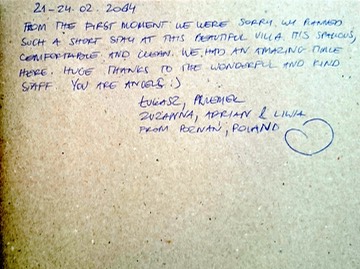 21-24.02.2014
FROM THE FIRST MOMENT WE WERE SORRY, WY PLANNED
SUCH A SHORT STAY AT THIS BEAUTIFUL VILLA. IT'S SPACIOUS,
COMFORTABLE AND CLEAN. WE HAD AN AMAZING TIME
HERE. HUGE THANKS TO THE WONDERFUL AND KIND
STAFF. YOU ARE ANGELS :)
ŁUKASZ, PRZEMEK
ZUZANNA, ADRIAN & LIWIA
FROM POZNAŃ, POLAND